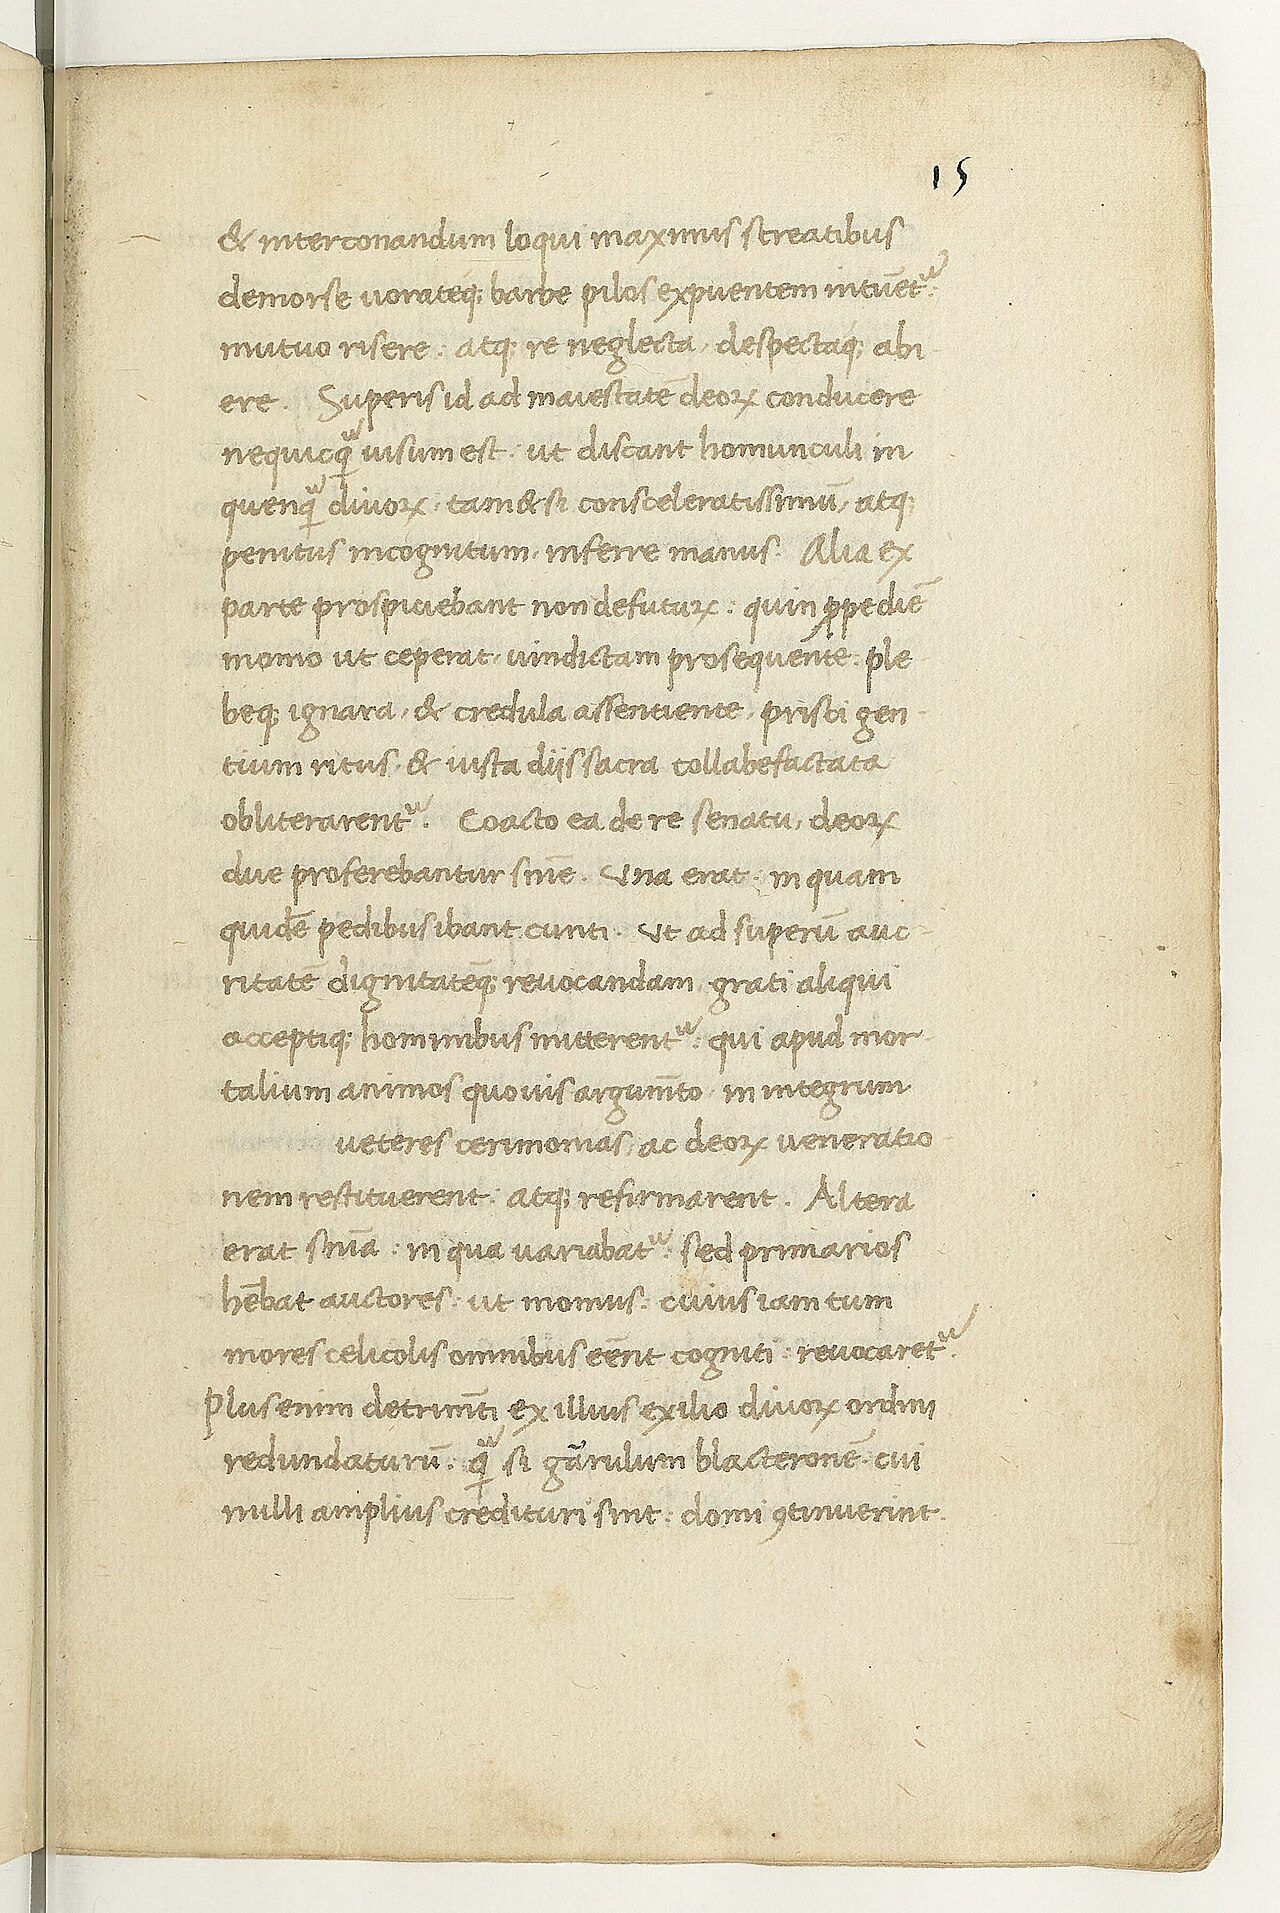 15
& interconandum loqui maximis screatibus
demorse uorateq; barbe pilos expuentem intuēt^ur:
mutuo risere: atq; re neglecta, despectaq; abi-
ere. Superis id ad maiestatē deoꝝ conducere
nequicq̃ uisum est: ut discant homunculi in
quenq̃ diuoꝝ, tam&si consceleratissimū, atq;
penitus incognitum, inferre manus. Alia ex
parte prospiciebant non defutuꝝ: quin ꝓpediē
momo ut ceperat, uindictam prosequente: ple
beq; ignara, & credula assentiente, prisci gen-
tium ritus, & iusta diis sacra collabefactata
obliterarent^ur. Coacto ea de re senatu, deoꝝ
due proferebantur sniē. Una erat, in quam
quidē pedibus ibant cunti. Ut ad superū auc-
ritatē dignitatēq; reuocandam, grati aliqui
acceptiq; hominibus mitterent^ur: qui apud mor-
talium animos quouis argum̄to, in integrum
ueteres cerimonias, ac deoꝝ ueneratio
nem restituerent: atq; refirmarent. Altera
erat sniā: in qua uariabat^ur: sed primarios
hēbat auctores: ut momus: cuius iam tum
mores celicolis omnibus eēnt cogniti: reuocaret^ur.
Plus enim detrim̄ti ex illius exilio diuoꝝ ordini
redundaturū: q̃ si garulum blacteronē, cui
nulli amplius credituri sint: domi ꝯtinuerint.